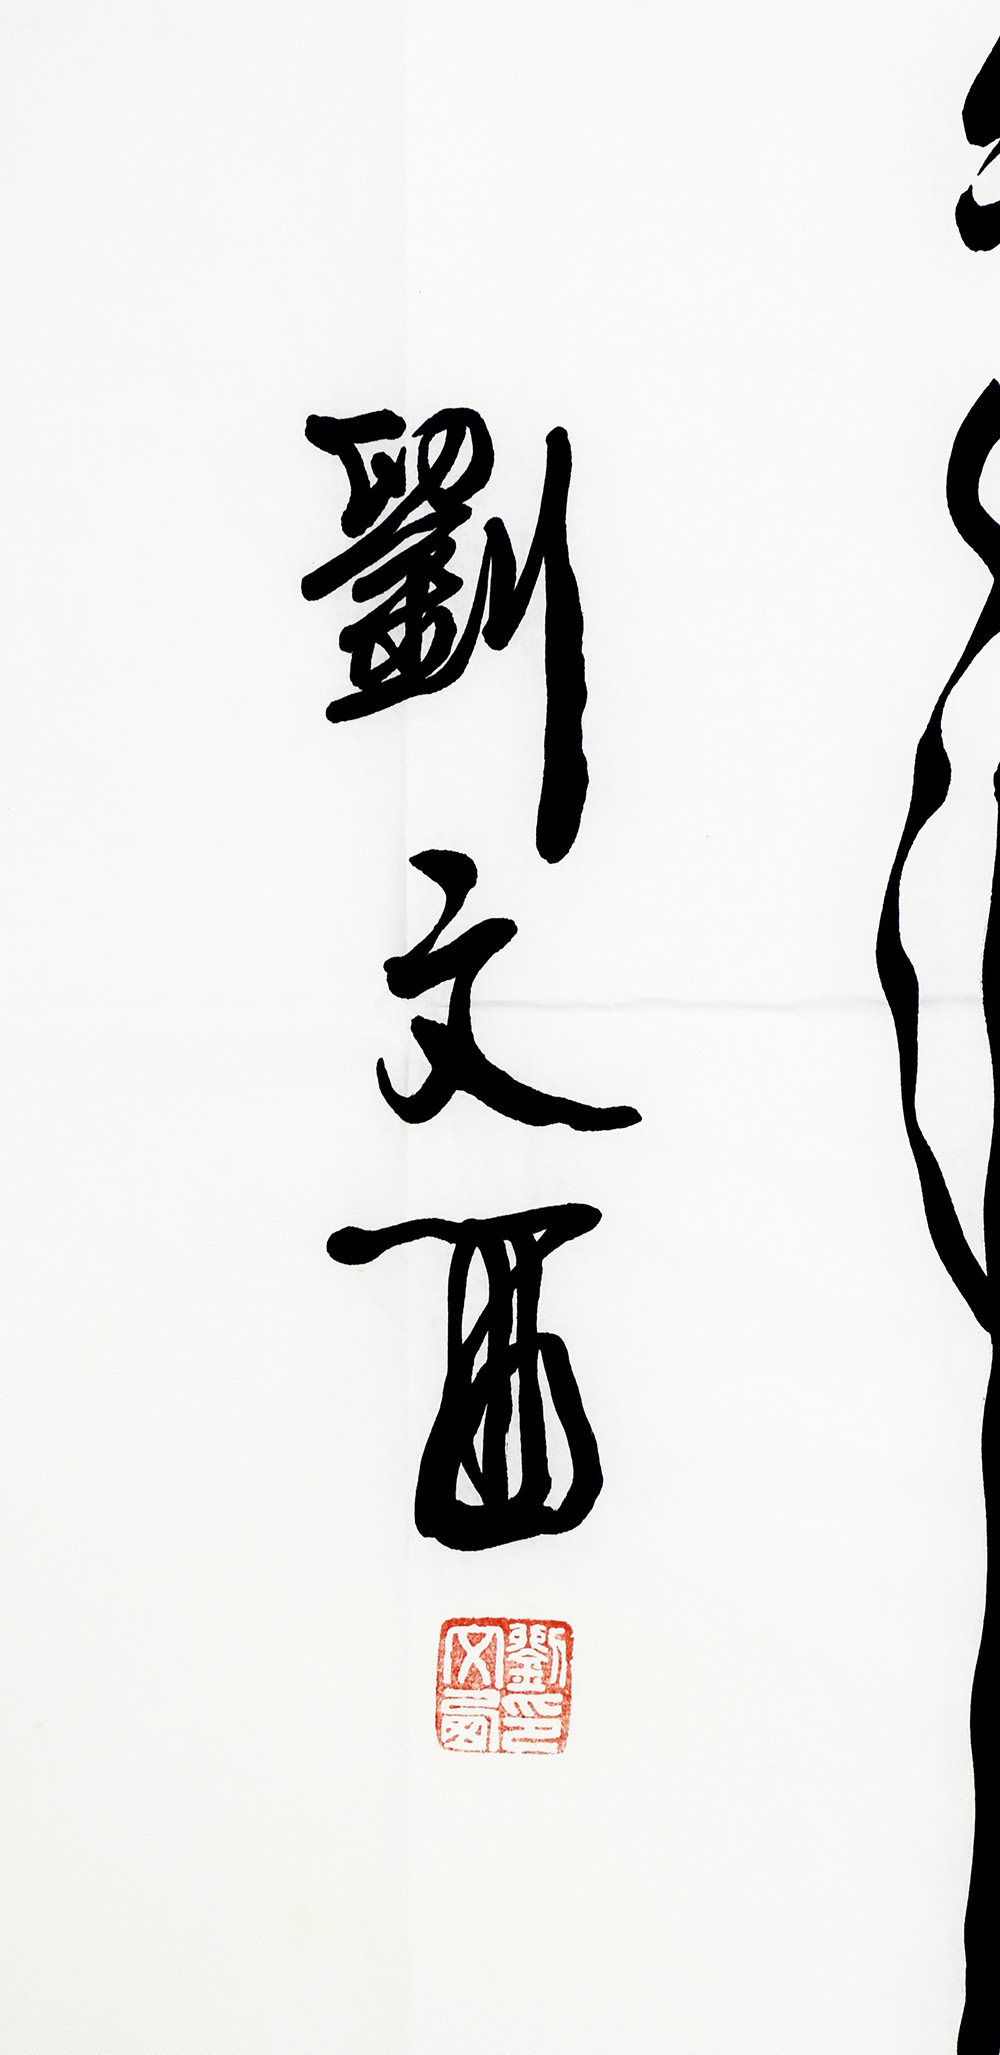 劉文西
劉印
文西